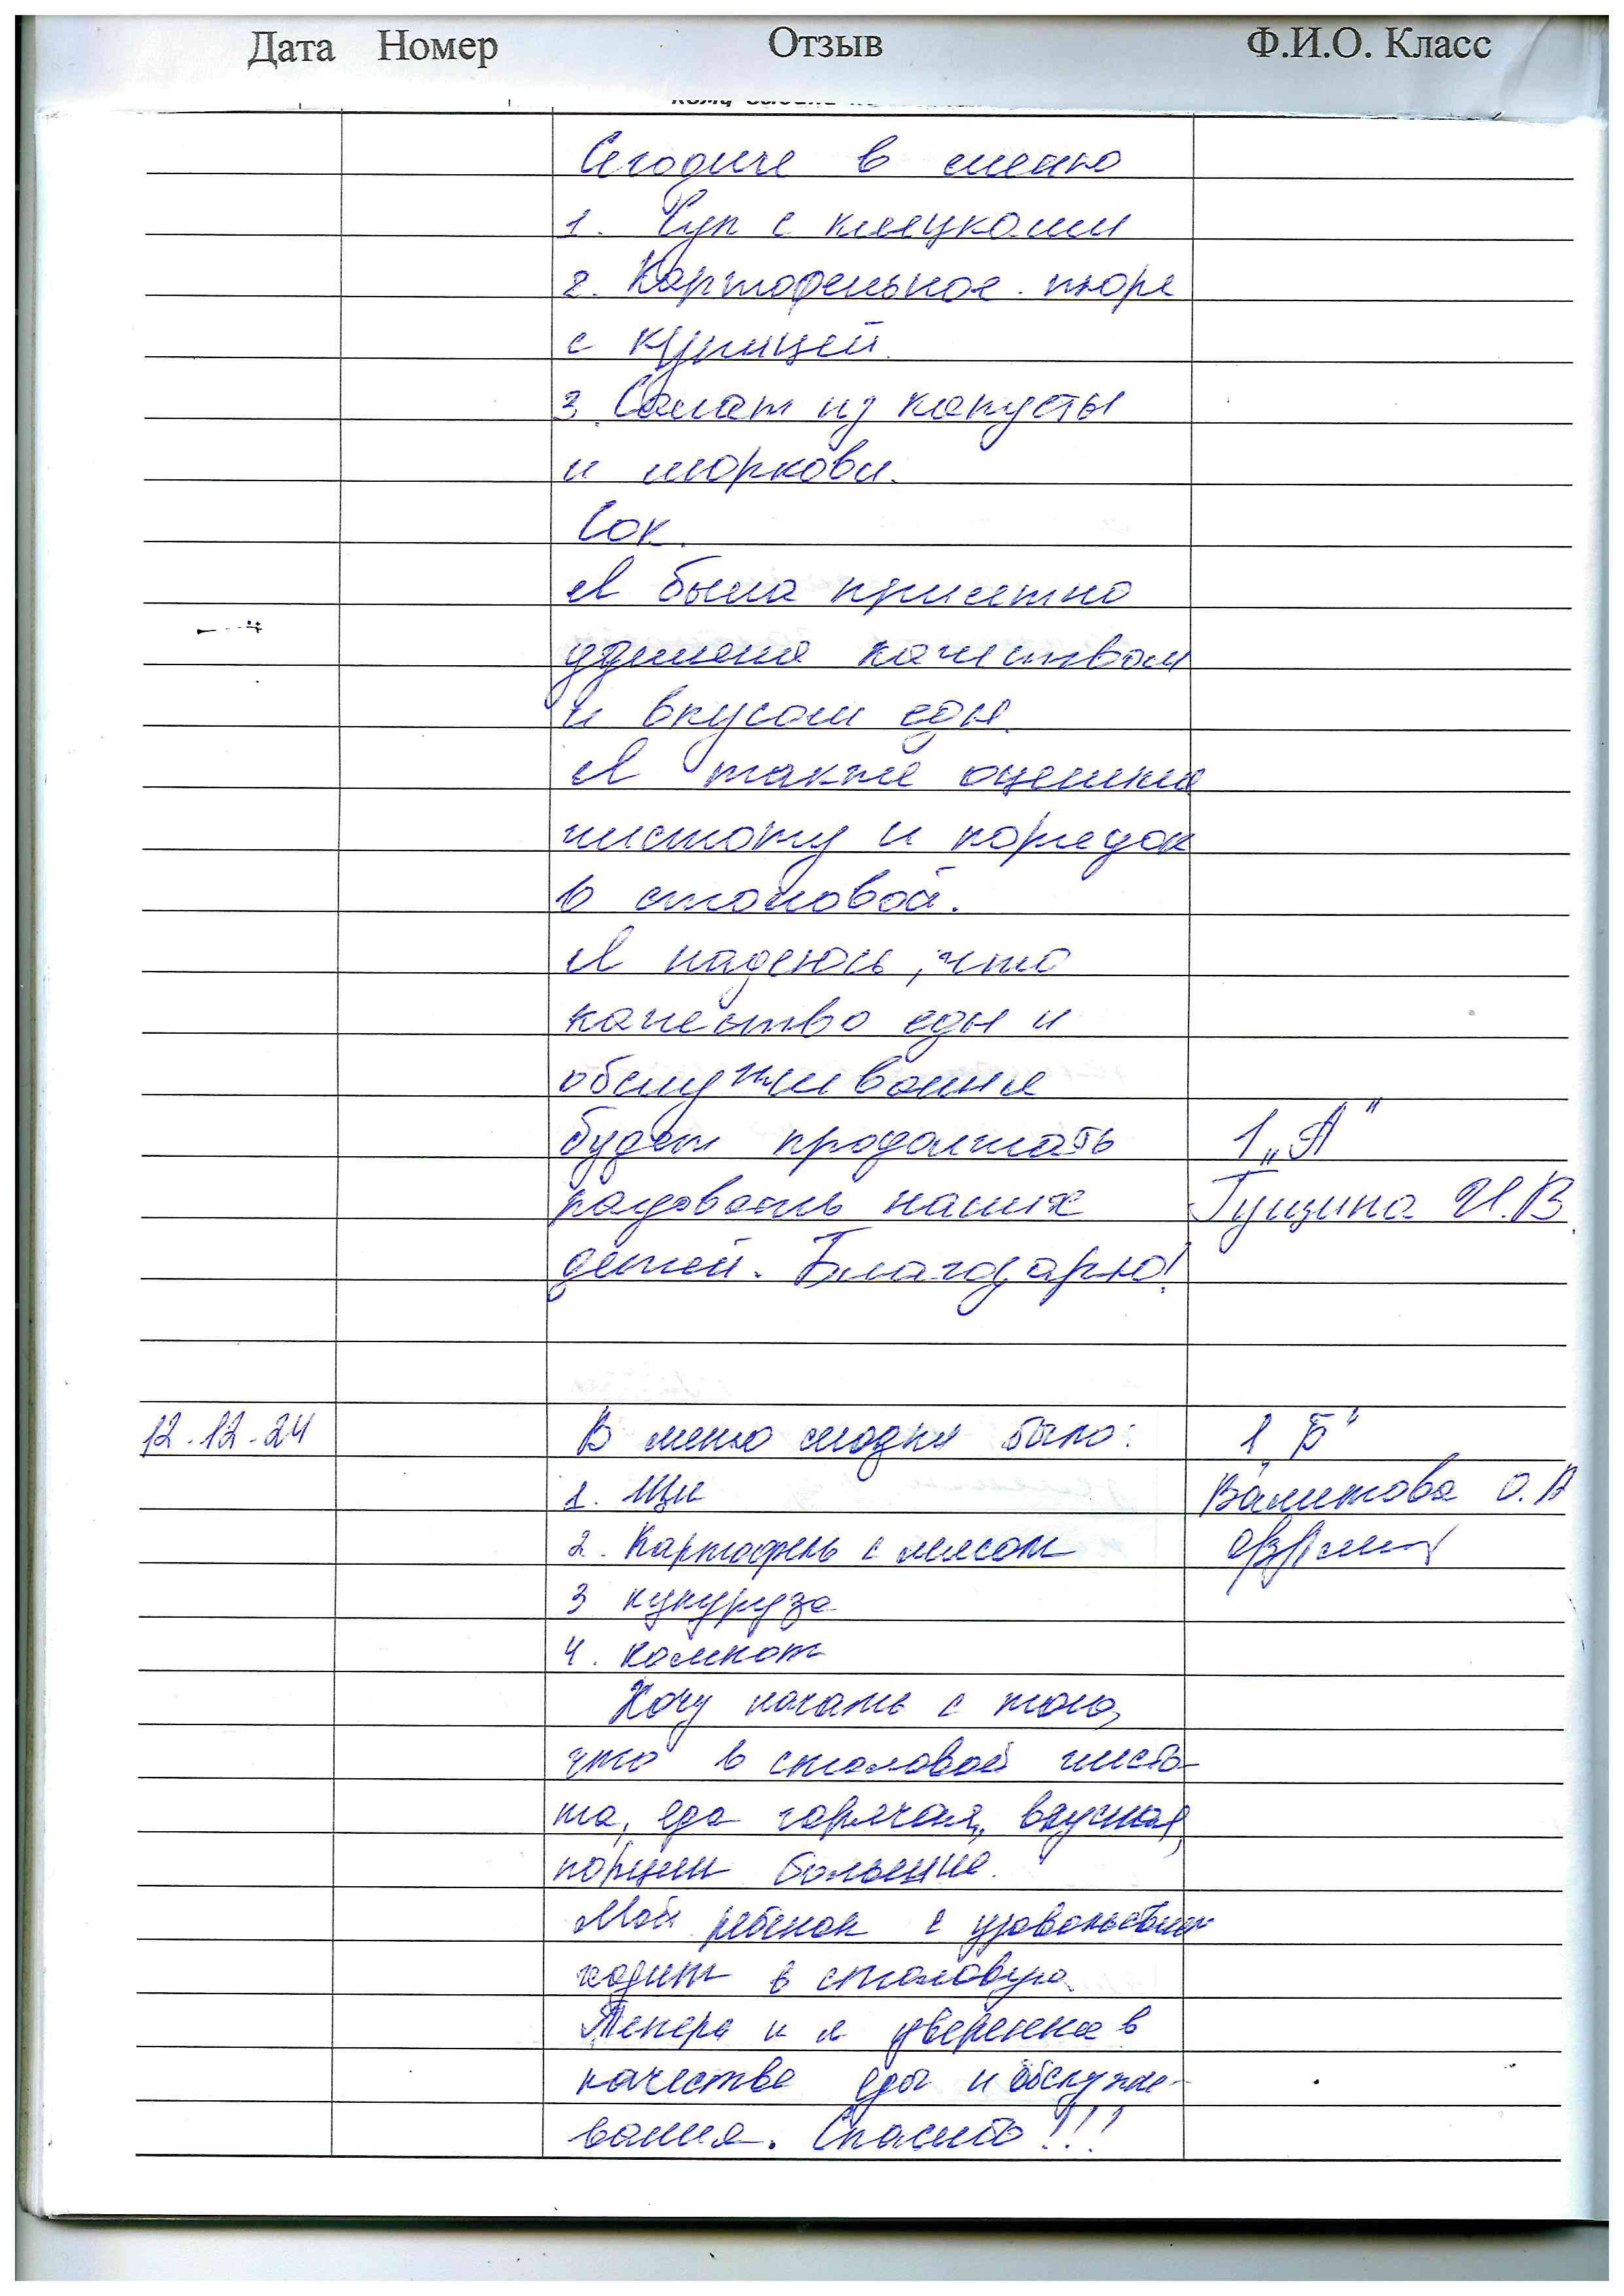 Дата Номер Отзыв Ф.И.О. Класс
Сегодня в меню
1. Суп с клецками
2. Картофельное пюре
с курицей.
3. Салат из капусты
и моркови.
Сок.
Я была приятно
удивлена качеством
и вкусом еды.
Я также оценила
чистоту и порядок
в столовой.
Я надеюсь, что
качество еды и
обслуживания
будет продолжать 1 „А"
радовать наших Гущина И.В.
детей. Благодарю!
12.12.24 В меню сегодня было: 1 Б"
1. Щи Валитова О.В
2. Картофель с мясом
3 кукуруза
4. компот
Хочу начать с того,
что в столовой чисто-
та, еда горячая, вкусная,
порции большие.
Мой ребенок с удовольствием
ходит в столовую.
Теперь и я уверенна в
качестве еды и обслужи-
вания. Спасибо!!!